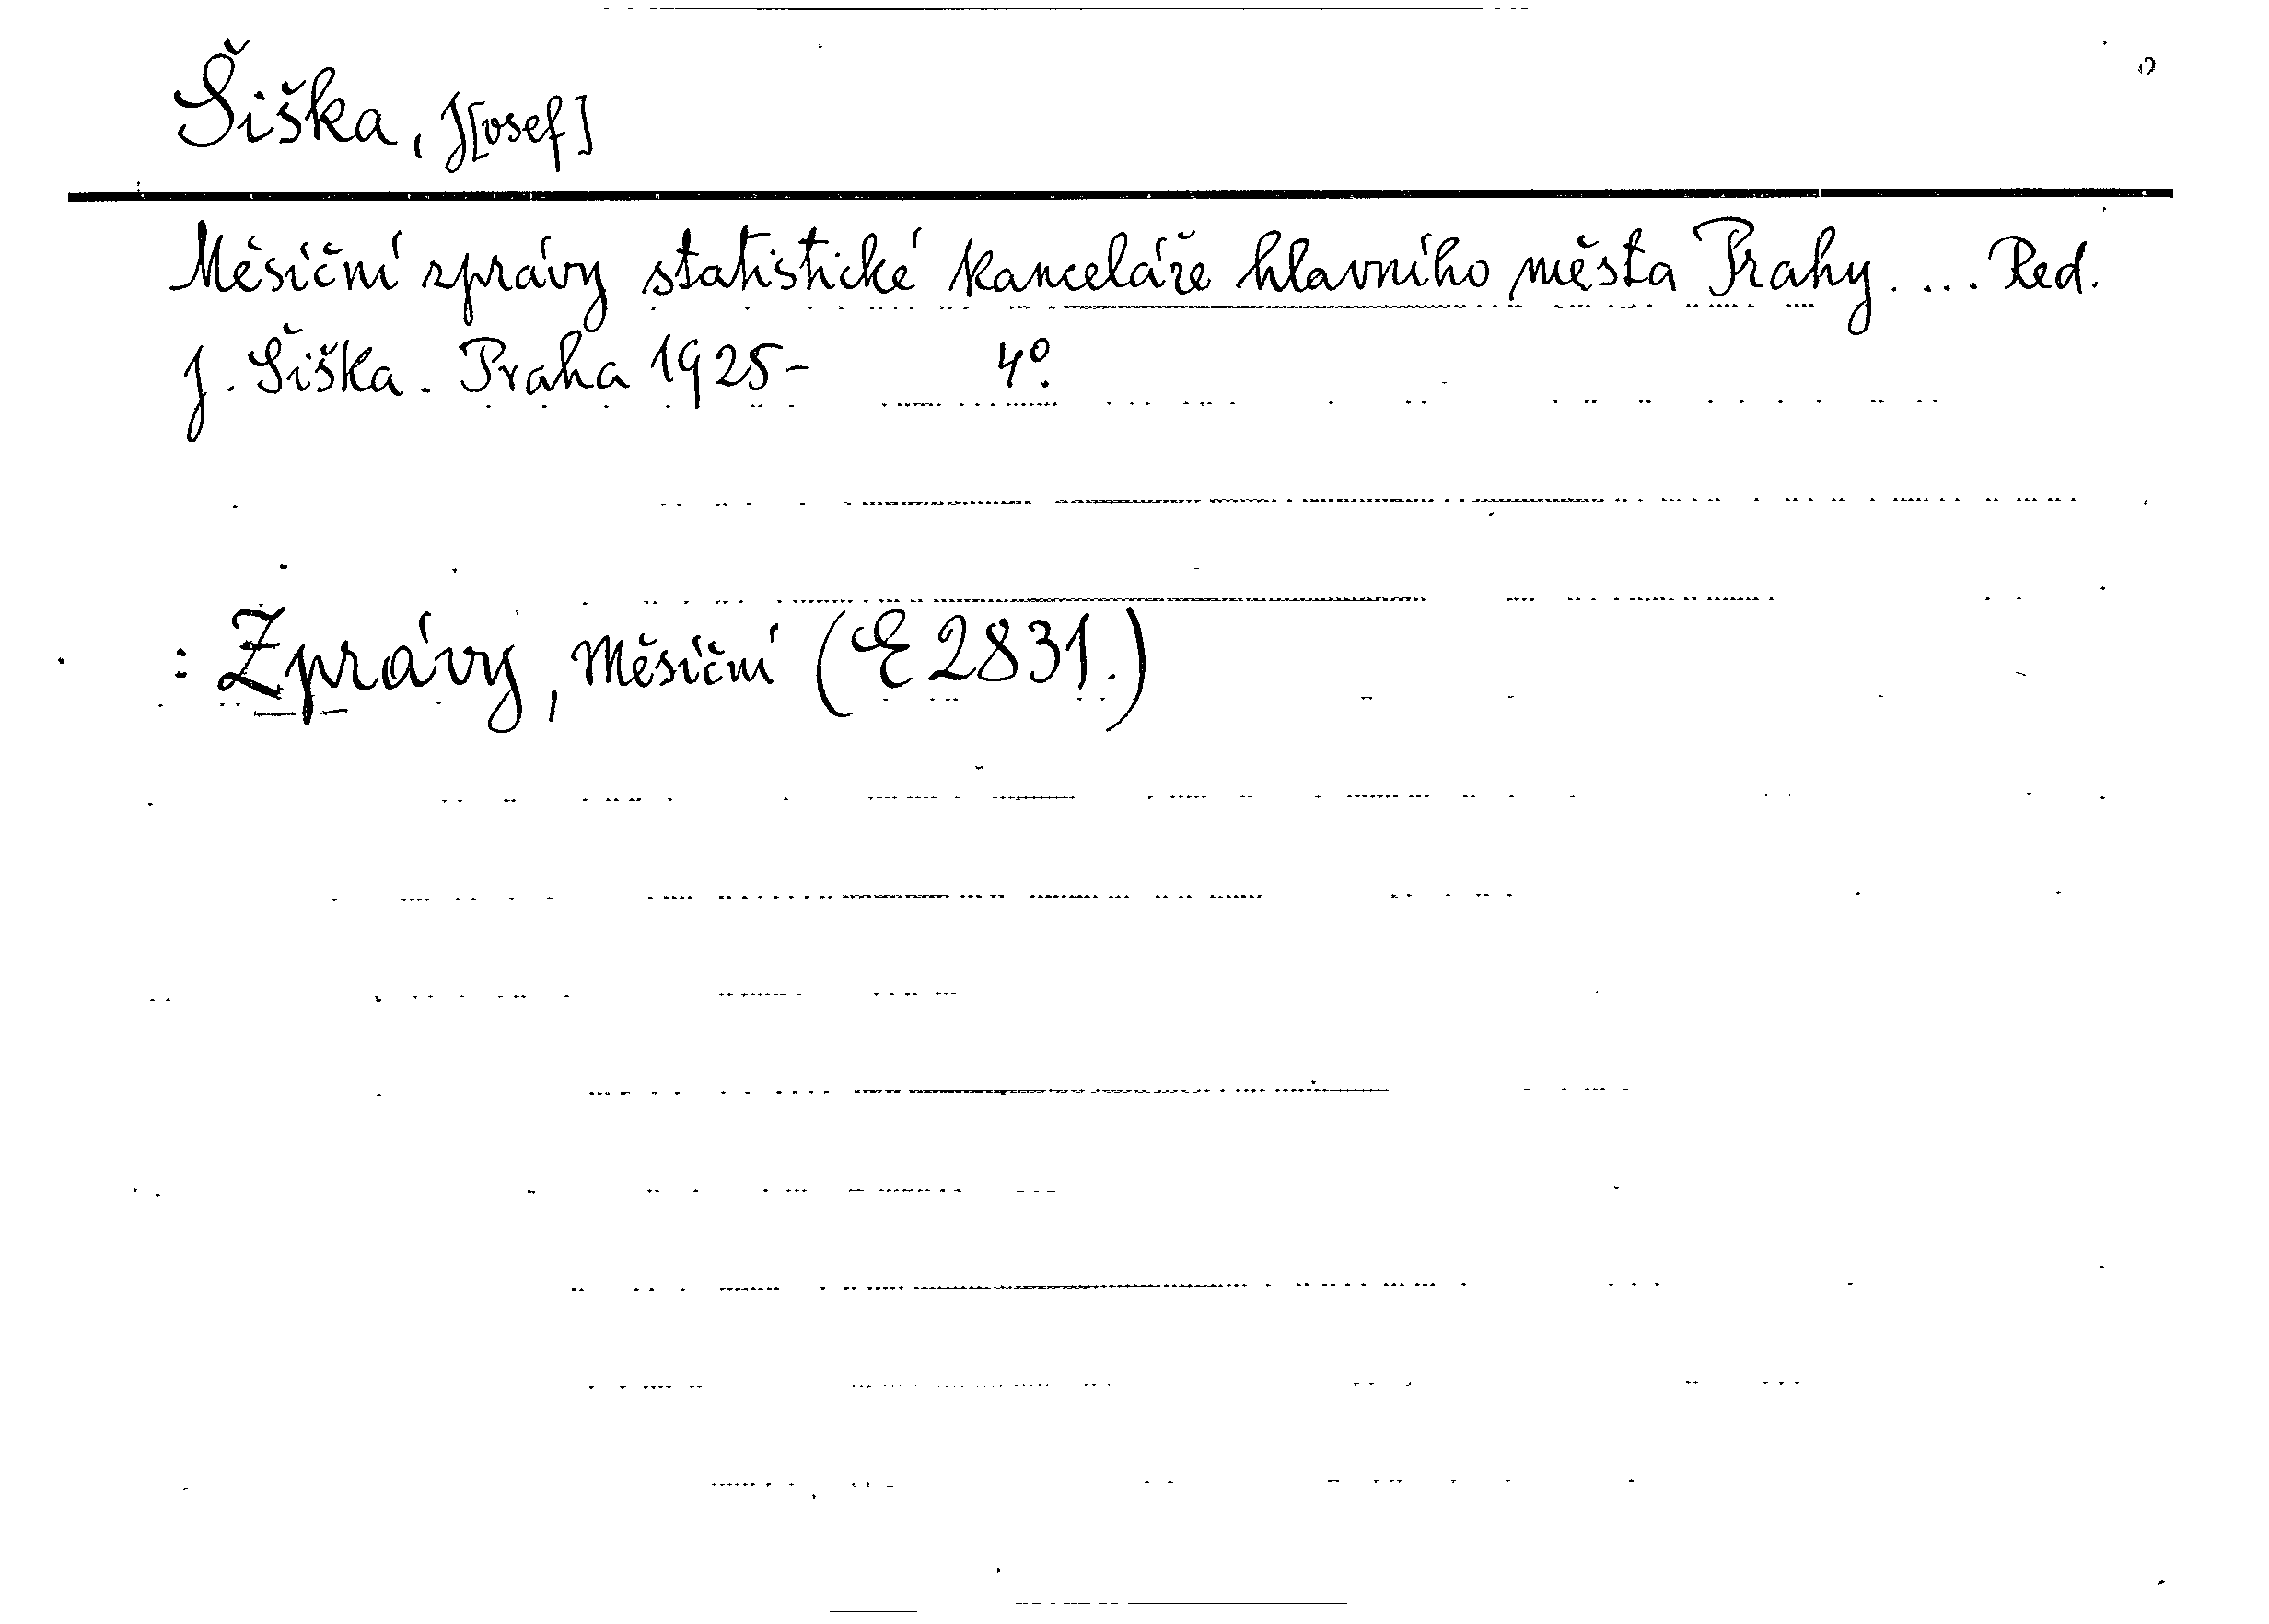 Šiška, J[osef]
Měsíční zprávy statistické kanceláře hlavního města Prahy.... Red.
J. Šiška. Praha 1925- 4°.
: Zprávy, měsíční (E 2831.)